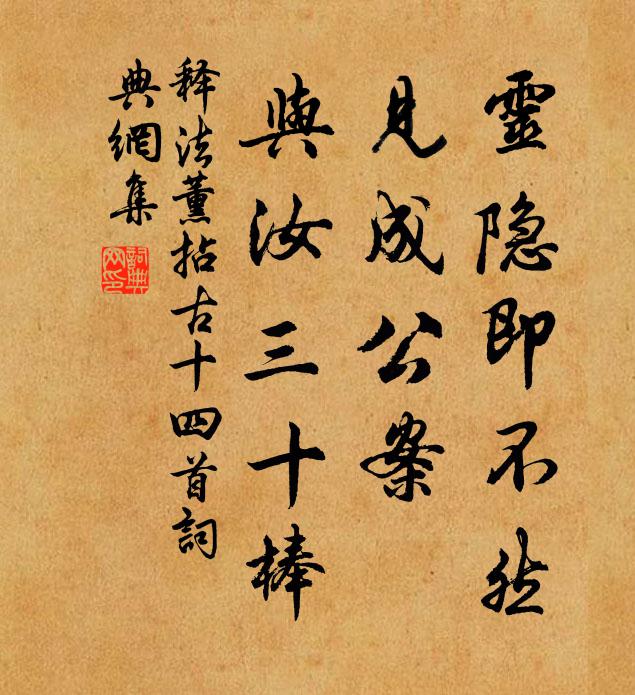 靈隐即不然
見成公案
與汝三十棒
释法薰拈古十四首詞
典網集
詞典網印